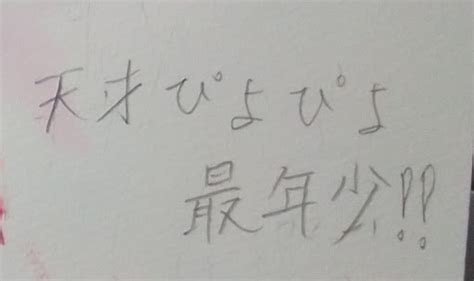 天才ぴよぴよ
最年少!!